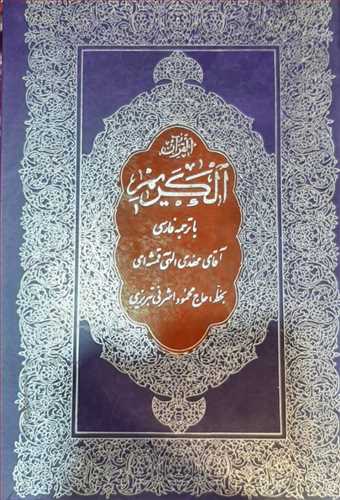 القرآن
الکریم
با ترجمه فارسی
آقای مهدی الهی قمشه‌ای
بخط، حاج محمود اشرفی تبریزی